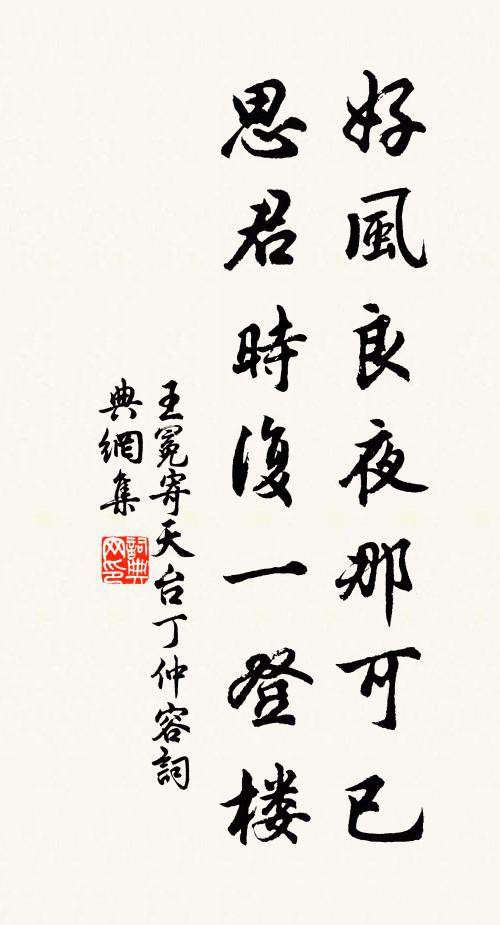 好風良夜那可已
思君時復一登楼
王冕寄天台丁仲容詞
典網集
詞典
网印